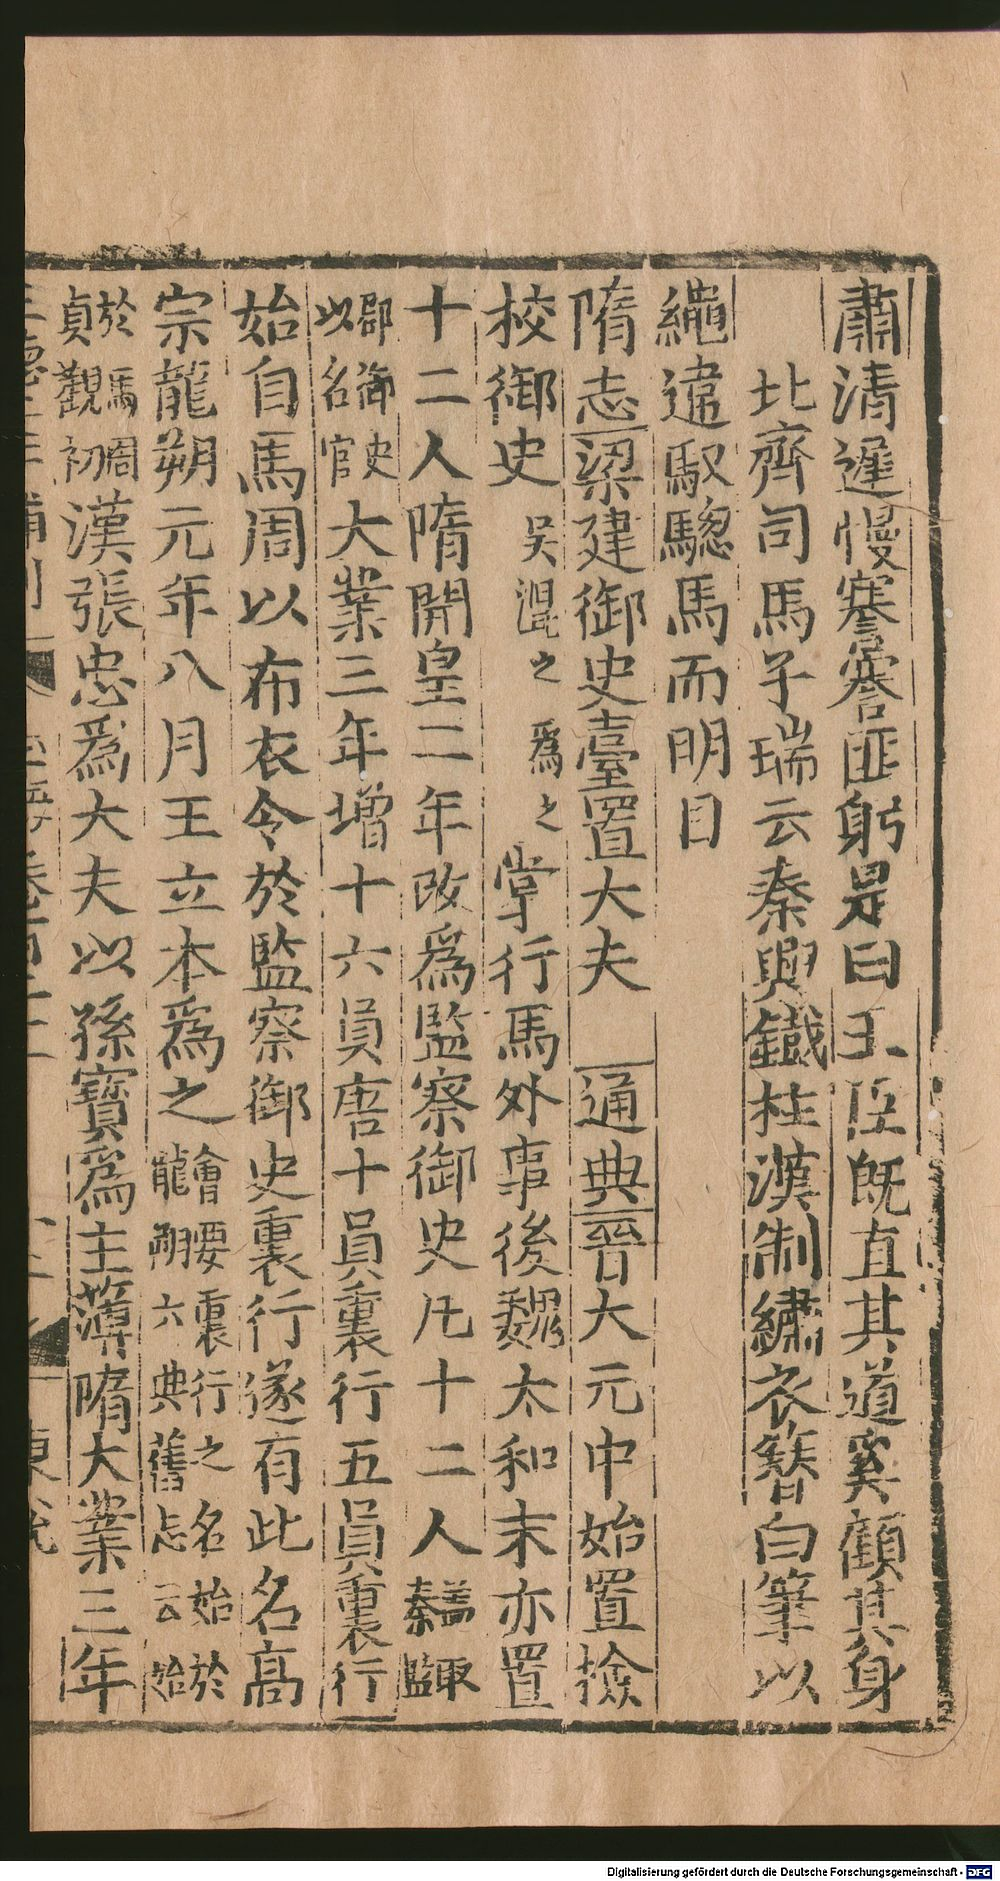 肅清遲慢謇謇匪躬是曰王臣既直其道奚顧其身
北齊司馬子瑞云秦興鐵柱漢制繡衣簪白筆以
繩違馭驄馬而明目
隋志梁建御史臺置大夫 通典晉大元中始置撿
校御史吳混之爲之掌行馬外事後魏太和末亦置
十二人隋開皇二年改爲監察御史凡十二人蓋取秦監
郡御史以名官大業三年增十六員唐十員裏行五員裏行
始自馬周以布衣令於監察御史裏行遂有此名高
宗龍朔元年八月王立本爲之會要裏行之名始於龍朔六典舊志云始
於馬周貞觀初漢張忠爲大夫以孫寶爲主簿隋大業三年
Digitalisierung gefördert durch die Deutsche Forschungsgemeinschaft - DFG